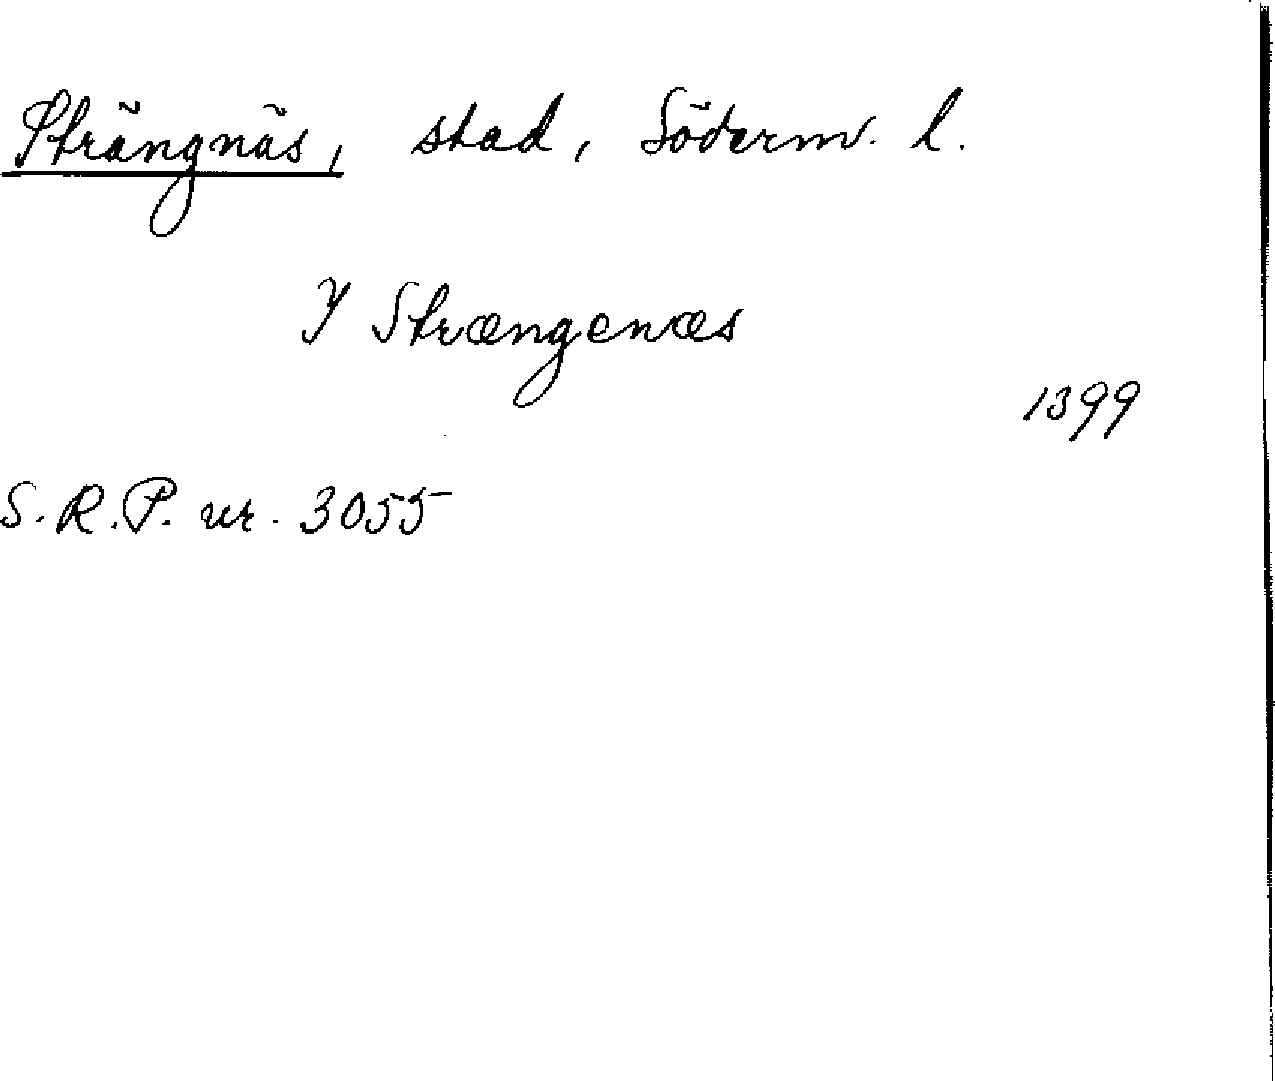 Strängnäs, stad, Söderm. l.
Y Strængenæs
1399
S.R.P. nr. 3055